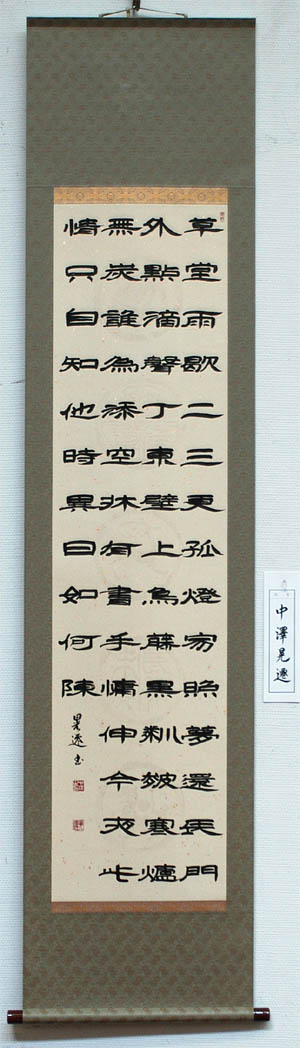 草堂雨歇二三更孤燈寂照夢還辰門
外點滴聲丁東壁上烏藤黑皴寒爐
無炭誰為添空床有書手慵伸今夜此
情只自知他時異日如何陳
晃邃書
中澤晃邃